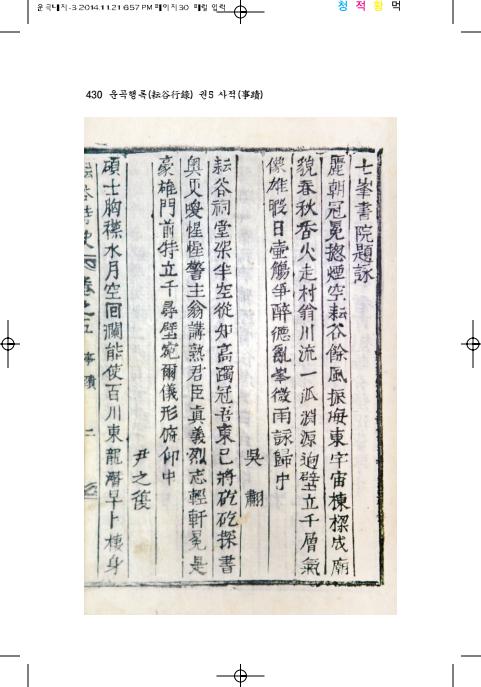 운곡대지-3 2014.11.21 6:57 PM 페이지30 매킬 입력
청 적 황 먹
430 운곡행록(耘谷行錄) 권5 사적(事蹟)
七峯書院題詠
麗朝冠冕摠煙空耘谷餘風振海東宇宙棟樑成廟
貌春秋香火走村翁川流一派淵源逈壁立千層氣
像雄暇日壺觴爭醉德亂峯微雨詠歸中
吳翿
耘谷祠堂架半空從知高躅冠吾東已將矻矻探書
奧更愛惺惺警主翁講熟君臣眞義烈志輕軒冕是
豪雄門前特立千尋壁宛爾儀形俯仰中
尹之復
碩士胸襟水月空回瀾能使百川東龍潛早卜棲身
耘谷詩史 卷之五 事蹟 二